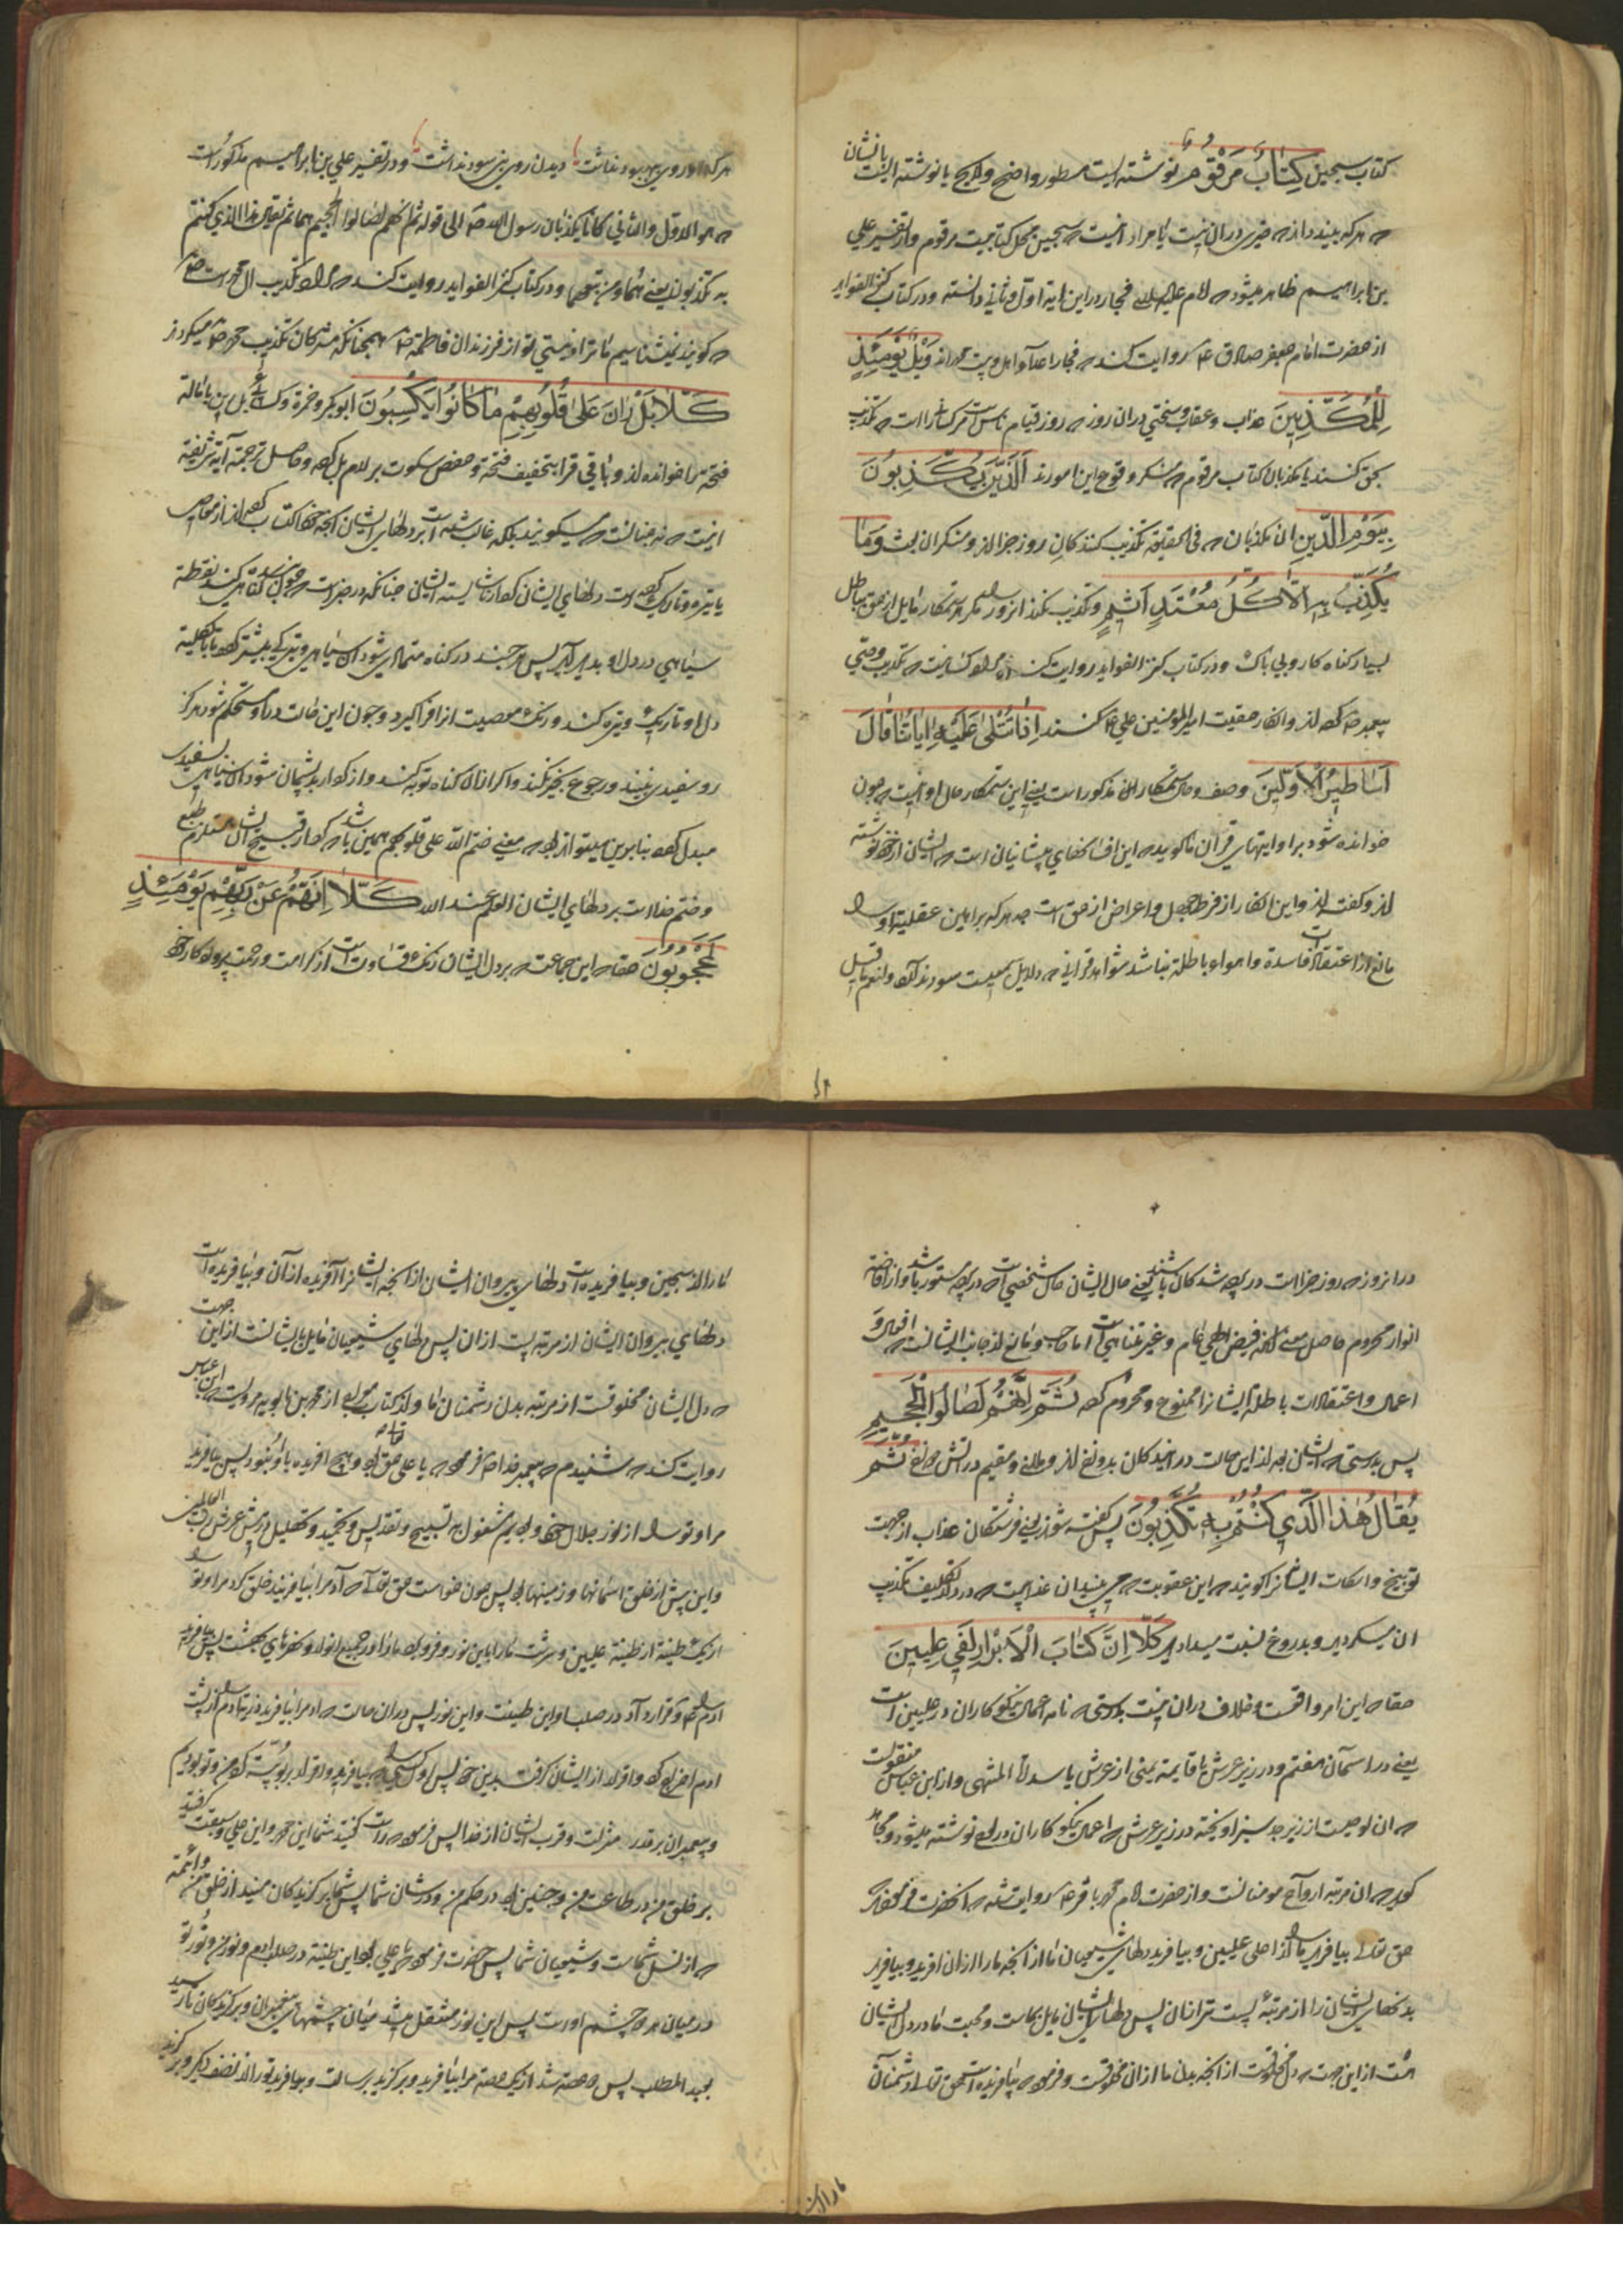 کتاب سجین کِتَابٌ مَرْقُومٌ نوشته ایست مسطور و واضح یا نوشته ایست با نشان
که هر که بیند داند که خیری در ان نیست یا مراد انست که سجین محل کتابیست مرقوم و از تفسیر علی
بن ابراهیم ظاهر میشود که در این ایة اول و ثانی و در کتاب کنز الفواید
از حضرت امام جعفر صادق ع روایت کنند که فجار اعدا وَيْلٌ يَوْمَئِذٍ
لِلْمُكَذِّبِينَ عذاب و عقاب و سختی در ان روز که روز قیام ناس است که تکذیب
بحق کنند یا مکذبان کتاب مرقوم که منکر وقوع این امورند اَلَّذِينَ يُكَذِّبُونَ
بِيَوْمِ الدِّينِ ان مکذبان که فی الحقیقه تکذیب کنندکان روز جزا اند و منکران وَمَا
يُكَذِّبُ بِهِ اِلَّا كُلُّ مُعْتَدٍ اَثِيمٍ و تکذیب نکند انروز را مکر هر ستمکار مایل از حق بباطل
بسیار کناه کار و بی باک و در کتاب کنز الفواید روایت کند که تکذیب وصی
پیمبر ص کرده اند و انکار حقیت امیر المؤمنین علی ع کنند اِذَا تُتْلَى عَلَيْهِ اٰيَاتُنَا قَالَ
اَسَاطِيرُ الْاَوَّلِينَ وصف و حال ستمکاران مذکور است یعنی این ستمکار حال او انست که چون
خوانده شود بر او ایتهای قران ما کوید که این افسانهای پیشانیان است که ایشان از خود نوشته
اند و کفته اند و این انکار از فرط جهل و اعراض از حق است چه هر که براهین عقلیه او را
مانع از اعتقادات فاسدة و اهواء باطلة نباشد شواهد قرانی که دلایل سمعیست سود ندهد
هر که را روی بهبود نداشت دیدن روی نبی سود نداشت و در تفسیر علی بن ابراهیم مذکور است
که هو الاول والثانی کانا یکذبان رسول الله ص الی قوله ثم انهم لصالوا الجحیم هما ثم یقال هذا الذی کنتم
به تکذبون یعنی هما و من تبعهما و در کتاب کنز الفواید روایت کند که مراد تکذیب ال محمد است ص
که کویند نمیشناسیم ما ترا و نیستی تو از فرزندان فاطمة همچنانکه مشرکان تکذیب محمد ص میکردند
كَلَّا بَلْ رَانَ عَلَى قُلُوبِهِمْ مَا كَانُوا يَكْسِبُونَ ابو بکر و حمزة و کسائی بل ران بامالة
فتحه را خوانده اند و باقی قرا بتخفیف فتحة و حفص سکوت بر لام بل کرده و حاصل ترجمة آیة شریفة
اینست که نه چنانست که میکویند بلکه غالب شده است بر دلهای ایشان انچه اکتساب کرده اند از معاصی
یا تیره و تاریک کرده است دلهای ایشان کردار ناشایسته ایشان چنانکه در خبر است که چون بنده کناهی کند نقطة
سیاهی در دل او پدید آید پس هر چند در کناه متمادی شود ان سیاهی و تیرکی بیشتر کردد تا بالکلیة
دل او تاریک و تیره کند و رنک معصیت از او فرا کیرد و چون این حالت در او مستحکم شود هرکز
روی سفیدی نبیند و رجوع بخیر نکند و اکر از ان کناه توبه کند و از کردار بد پشیمان شود ان سیاهی بسفیدی
مبدل کردد بنابرین میتواند بود که معنی ختم الله علی قلوبهم همین باشد که کردار قبیح ایشان مستلزم طبع
و ختم خدا است بر دلهای ایشان العلم عند الله كَلَّا اِنَّهُمْ عَنْ رَبِّهِمْ يَوْمَئِذٍ
لَمَحْجُوبُونَ حقا که این جماعت که بر دل ایشان رنک قساوت است از کرامت و رحمت پرورکار خود
در انروز که روز جزا است در پرده شدکان باشند یعنی حال ایشان حال شخصی است که در پرده مستور باشد و از افاضة
انوار محروم حاصل معنی انکه فیض الهی عام و غیر متناهی است اما حاجب و مانع از جانب ایشانست که
اعمال و اعتقادات باطلة ایشانرا ممنوع و محروم کرده ثُمَّ اِنَّهُمْ لَصَالُوا الْجَحِيمِ
پس بدرستی که ایشان بعد از این حالت در ایندکان بدوزخ اند و ملازم و مقیم در اتش دوزخ ثُمَّ
يُقَالُ هٰذَا الَّذِي كُنْتُمْ بِهِ تُكَذِّبُونَ پس کفته شود یعنی فرشتکان عذاب از جهت
توبیخ و اسکات ایشانرا کویند که این عقوبت که می بینید ان عذابیست که در دار تکلیف تکذیب
ان میکردید و بدروغ نسبت میدادید كَلَّا اِنَّ كِتَابَ الْاَبْرَارِ لَفِي عِلِّيِّينَ
حقا که این امر واقعست و خلاف در ان نیست بدرستی که نامه اعمال نیکوکاران در علیین است
یعنی در اسمان هفتم و در زیر عرش یا قایمة یمنی از عرش یا سدرة المنتهی و از ابن عباس منقولست
که ان لوحیست از زبرجد سبز اویخته در زیر عرش که اعمال نیکوکاران در لوح نوشته میشود و مجاهد
کوید که ان مرتبه ارواح مومنانست و از حضرت امام محمد باقر ع روایت شده که انحضرت فرمودند
حق تعالی بیافرید ما را از اعلی علیین و بیافرید دلهای شیعیان ما از انچه ما را از ان افرید و بیافرید
بدنهای ایشان را از مرتبه پست تر از ان پس دلهای ایشان مایل بماست و محبت ما در دل ایشان
است از این جهت که دل مخلوقست از انچه بدن ما از ان مخلوقست و فرمود که بیافریده است حق تعالی دشمنان
ما را از سجین و بیافریده است دلهای پیروان ایشان از انچه ایشانرا آفریده از آن و بیافریده است
دلهای پیروان ایشان از مرتبه پست از ان پس دلهای شیعیان مایل بایشانست از این جهت
که دل ایشان مخلوقست از مرتبه بدن دشمنان ما و از کتاب از محمد بن بابویه مرویست که ابن عباس
روایت کند که شنیدم که پیمبر خدا ص فرمود که یا علی حق تعالی بود و هیچ افریده با او نبود پس بیافرید
مرا و تو را از نور جلال خود و بودیم مشغول بتسبیح و تقدیس و تحمید و تهلیل در پیش عرش رب العالمین
و این پیش از خلق اسمانها و زمینها بود پس چون خواست حق تعالی که آدم را بیافریند خلق کرد مرا و تو را
از یک طینة از طینة علیین و سرشت ما را باین نور و فرو برد ما را در جمیع انوار و نهرهای بهشت پس بیافرید
ادم را و قرار داد در صلب او این طینت و این نور پس در ان حالت که ادم را بیافرید ذریة ادم را از پشت
ادم اخراج کرد و اقرار از ایشان کرفت
و پیمبران بر قدر منزلت و قرب ایشان از خدا پس فرمود که راست کفتید شما این محمد و این علی و سبقت کرفتید
بر خلق من در طاعت من و چنین بود در حکم من و در شان شما پس شما برکزیدکان منید از خلق من و ائمه
که از نسل شماست و شیعیان شما پس حضرت فرمود که یا علی بود این طینة در صلب ادم و نور من و نور تو
در میان هر دو چشم او است پس این نور منتقل میشد میان چشمهای پیغمبران و برکزیدکان تا رسید
بعبد المطلب پس دو حصه شد از یک حصه مرا بیافرید و برکزید برسالت و بیافرید تو را از نصف دیکر و برکزید